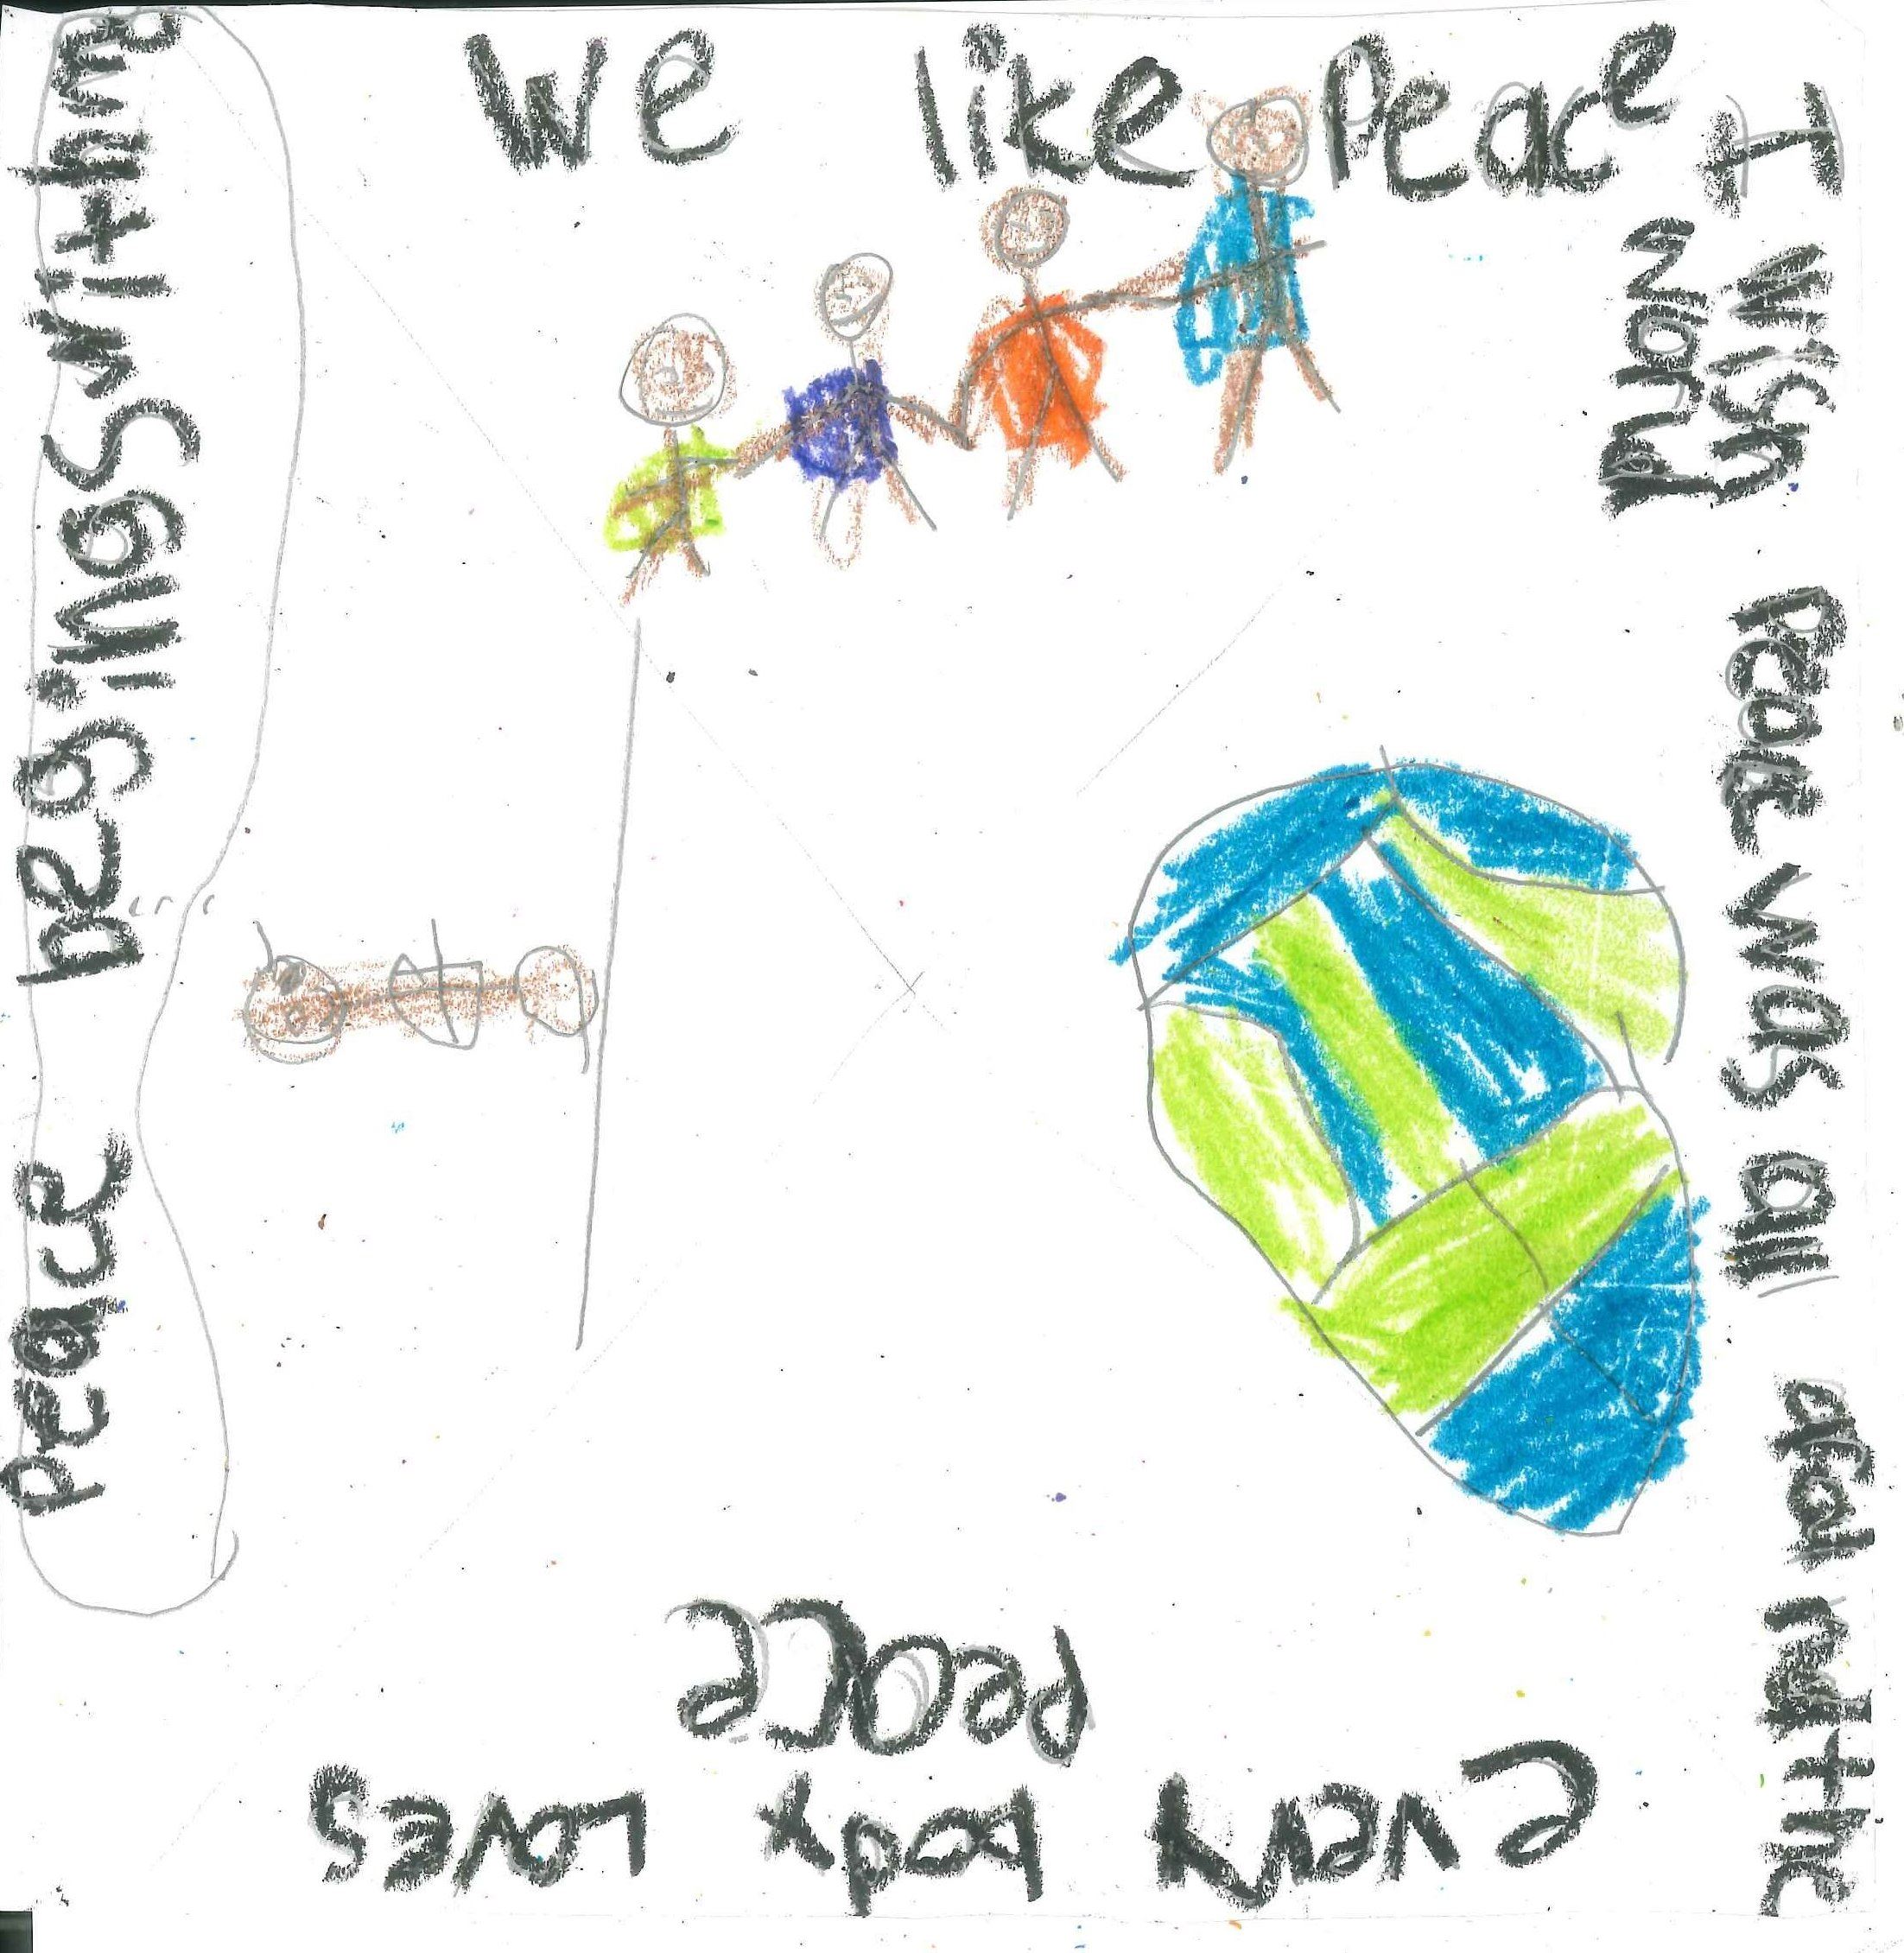 We like Peace
I wish Peace was all inthe
World
Every body Loves
Peace
Peace begings withme